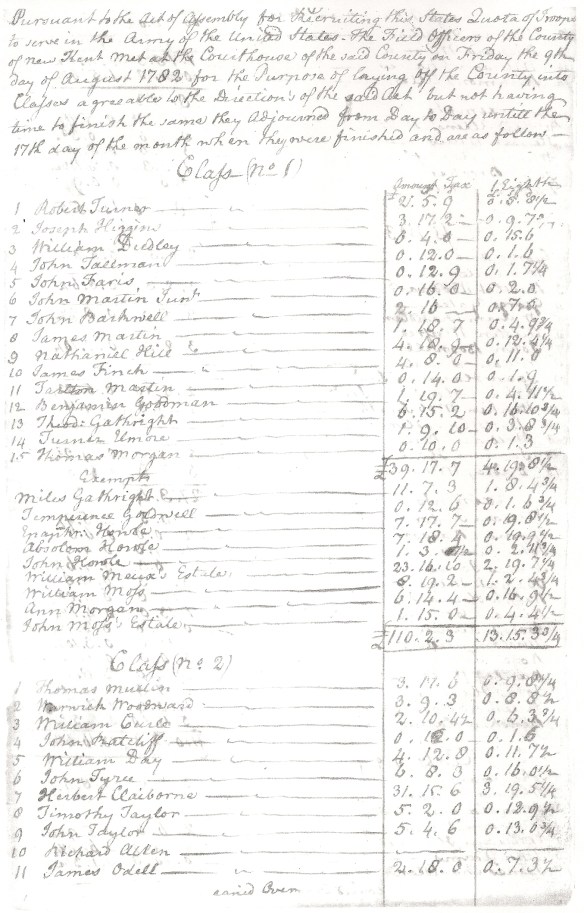 Pursuant to the Act of Assembly for Recruiting this States Quota of Troops
to serve in the Army of the United States. The Field Officers of the County
of New Kent met at the Courthouse of the said County on Friday the 9th
day of August 1782 for the Purpose of laying off the County into
Classes agreeable to the Direction's of the said Act but not having
time to finish the same they Adjourned from Day to Day untill the
17th day of the month when they were finished and are as follow—
Class (No 1)
Tax 1 Eighth
1 Robert Turner 2. 5. 9
2 Joseph Higgins 3. 17. 2 0. 9. 7
3 William Dudley 6. 4. 0 0. 15. 6
4 John Tallman 0. 12. 0 0. 1. 6
5 John Faris 0. 12. 9 0. 1. 7 1/4
6 John Martin Junr 0. 16. 0 0. 2. 0
7 John Barkwell 2. 16
8 James Martin 1. 18. 7 0. 4. 9 3/4
9 Nathaniel Hill 4. 18. 9 0. 12. 4 1/4
10 James Finch 4. 8. 0 0. 11. 0
11 Tarlton Martin 0. 14. 0 0. 1. 9
12 Benjamin Goodman 1. 19. 7 0. 4. 11 1/2
13 Thod: Gathright 6. 15. 2 0. 16. 10 3/4
14 Turner Elmore 1. 9. 10 0. 3. 8 3/4
15 Thomas Morgan 0. 10. 0 0. 1. 3
£39. 17. 7 4. 19. 8 1/2
Exempts
Miles Gathright 11. 7. 3 1. 8. 4 3/4
Temperence Goldwell 0. 12. 6 0. 1. 6 3/4
Howle 7. 17. 7 0. 19. 8 1/2
Absolom Howle 7. 18. 4 0. 19. 9 1/2
John Howle 1. 3. 0. 2.
William Meux's Estate 23. 16. 10 2. 19. 7 1/4
William Moss 8. 19. 2 1. 2. 4 3/4
Ann Morgan 6. 14. 4 0. 16. 9 1/2
John Moss's Estate 1. 15. 0 0. 4. 4 1/2
£110. 2. 3 13. 15. 3 3/4
Class (No. 2)
1 Thomas Mullin 3. 17. 6 0. 9. 8 1/4
2 Warwick Woodward 3. 9. 3 0. 8. 8 1/2
3 William 2. 10. 4 1/2 0. 6. 3 3/4
4 John Ratcliff 0. 12. 0 0. 1. 6
5 William Day 4. 12. 8 0. 11. 7 1/2
6 John Tyree 6. 8. 3 0. 16. 0 1/2
7 Herbert Claiborne 31. 15. 6 3. 19. 5 1/4
8 Timothy Taylor 5. 2. 0 0. 12. 9 1/2
9 John Taylor 5. 4. 6 0. 13. 0 3/4
10 Richard Allen
11 James Odell 2. 18. 0 0. 7. 3 1/2
caried Over